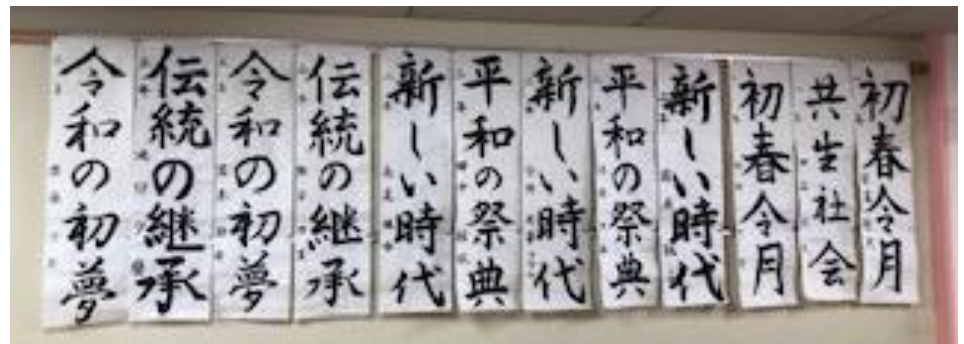 初春令月
共生社会
初春令月
新しい時代
平和の祭典
新しい時代
平和の祭典
新しい時代
伝統の継承
令和の初夢
伝統の継承
令和の初夢